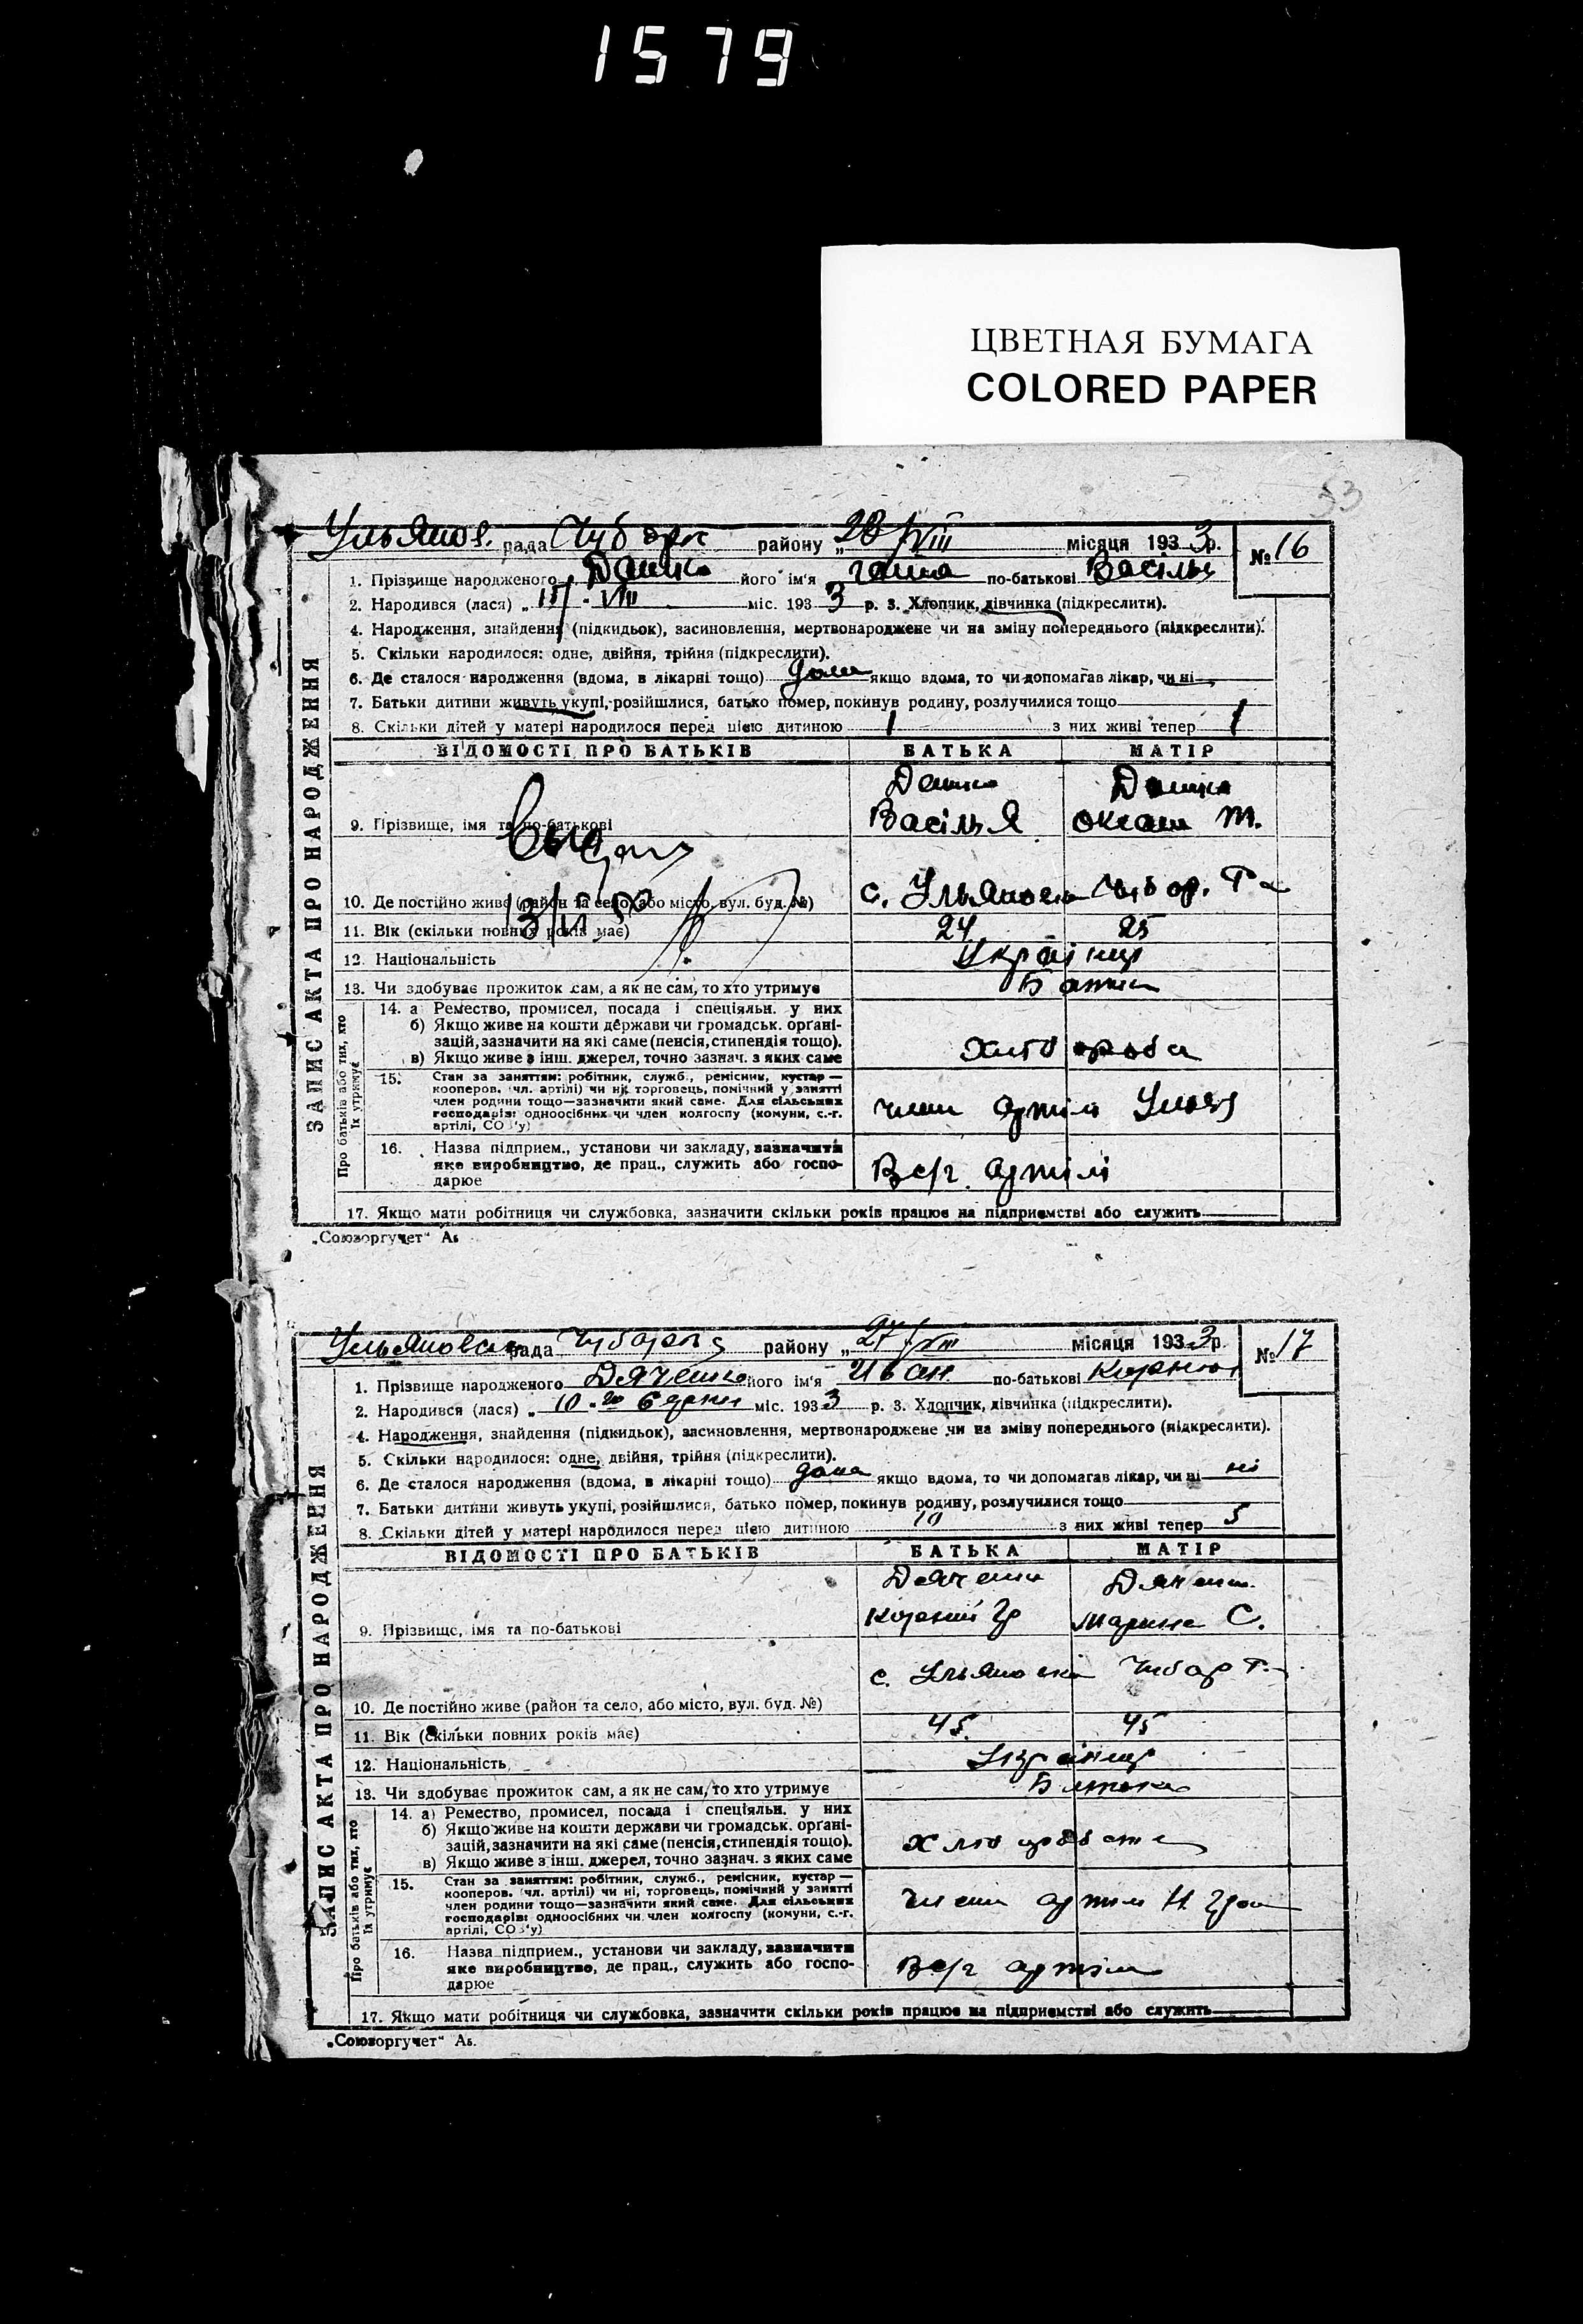 1579
ЦВЕТНАЯ БУМАГА
COLORED PAPER
53
Ульянов. рада Чубар району „28/VIII місяця 1933 р. № 16
1. Прізвище народженого його ім'я Ганна по-батькові Василь
2. Народився (лася) „ 15/VIII міс. 1933 р. 3. Хлопчик, дівчинка (підкреслити).
4. Народження, знайдення (підкидьок), засиновлення, мертвонароджене чи на зміну попереднього (підкреслити).
5. Скільки народилося: одне, двійня, трійня (підкреслити).
6. Де сталося народження (вдома, в лікарні тощо) дома якщо вдома, то чи допомагав лікар, чи ні
7. Батьки дитини живуть укупі, розійшлися, батько помер, покинув родину, розлучилися тощо
8. Скільки дітей у матері народилося перед цією дитиною 1 з них живі тепер 1
ЗАПИС АКТА ПРО НАРОДЖЕННЯ
ВІДОМОСТІ ПРО БАТЬКІВ БАТЬКА МАТІР
9. Прізвище, імя та по-батькові Василь Я М.
10. Де постійно живе (район та село, або місто, вул. буд. №) с. Ульяновка Чубар. Р-
11. Вік (скільки повних років має) 24 25
12. Національність Українці
13. Чи здобуває прожиток сам, а як не сам, то хто утримує
Про батьків або тих, хто їх утримує
14. а) Ремество, промисел, посада і спеціяльн. у них
б) Якщо живе на кошти держави чи громадськ. органі-
зацій, зазначити на які саме (пенсія, стипендія тощо).
в) Якщо живе з інш. джерел, точно зазнач. з яких саме
15. Стан за заняттям: робітник, служб., ремісник, кустар —
кооперов. (чл. артілі) чи ні, торговець, помічний у занятті
член родини тощо—зазначити який саме. Для сільських
господарів: одноосібних чи член колгоспу (комуни, с.-г.
артілі, СОЗ'у)
члени артілі
16. Назва підприєм., установи чи закладу, зазначити
яке виробництво, де прац., служить або госпо-
дарює
В с/г. артілі
17. Якщо мати робітниця чи службовка, зазначити скільки років працює на підприємстві або служить
„Союзоргучет“ Аб
Ульяновська рада Чубарь району „27/VIII місяця 1933 р. № 17
1. Прізвище народженого Дяченко його ім'я Иван по-батькові
2. Народився (лася) „ 10-го Серпня міс. 1933 р. 3. Хлопчик, дівчинка (підкреслити).
4. Народження, знайдення (підкидьок), засиновлення, мертвонароджене чи на зміну попереднього (підкреслити).
5. Скільки народилося: одне, двійня, трійня (підкреслити).
6. Де сталося народження (вдома, в лікарні тощо) дома якщо вдома, то чи допомагав лікар, чи ні ні
7. Батьки дитини живуть укупі, розійшлися, батько помер, покинув родину, розлучилися тощо
8. Скільки дітей у матері народилося перед цією дитиною 10 з них живі тепер 5
ЗАПИС АКТА ПРО НАРОДЖЕННЯ
ВІДОМОСТІ ПРО БАТЬКІВ БАТЬКА МАТІР
Дяченко Дяченко
9. Прізвище, імя та по-батькові Корній Гр Марина С.
с. Ульяновка Чубар Р-
10. Де постійно живе (район та село, або місто, вул. буд. №)
11. Вік (скільки повних років має) 45 45
12. Національність Українці
13. Чи здобуває прожиток сам, а як не сам, то хто утримує
Про батьків або тих, хто їх утримує
14. а) Ремество, промисел, посада і спеціяльн. у них
б) Якщо живе на кошти держави чи громадськ. органі-
зацій, зазначити на які саме (пенсія, стипендія тощо).
в) Якщо живе з інш. джерел, точно зазнач. з яких саме
15. Стан за заняттям: робітник, служб., ремісник, кустар —
кооперов. (чл. артілі) чи ні, торговець, помічний у занятті
член родини тощо—зазначити який саме. Для сільських
господарів: одноосібних чи член колгоспу (комуни, с.-г.
артілі, СОЗ'у)
члени артілі
16. Назва підприєм., установи чи закладу, зазначити
яке виробництво, де прац., служить або госпо-
дарює
В с/г артілі
17. Якщо мати робітниця чи службовка, зазначити скільки років працює на підприємстві або служить
„Союзоргучет“ Аб.